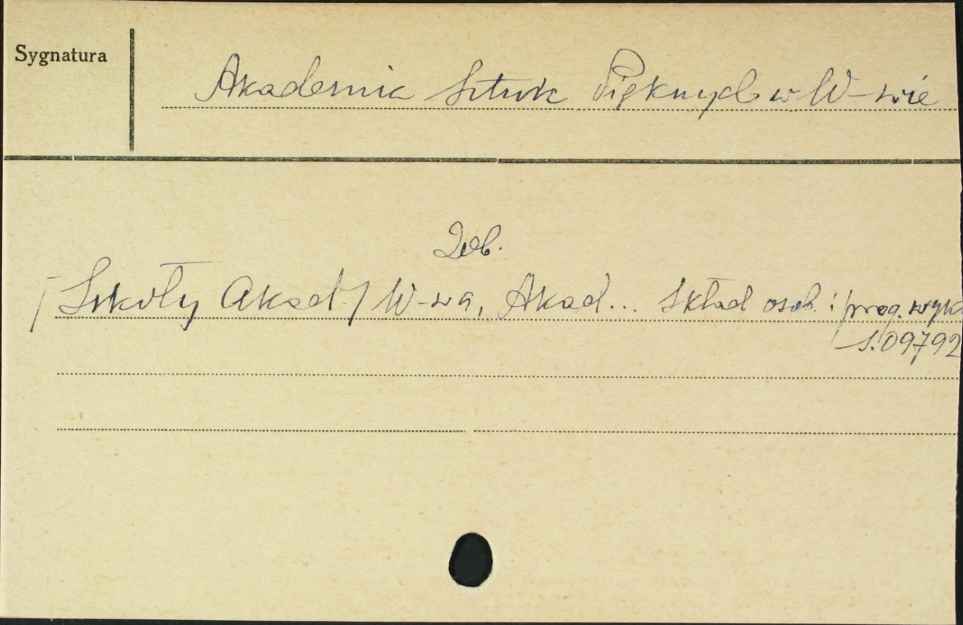 Sygnatura
Akademia Sztuk Pięknych w W-wie
Zob.
[Szkoły Akad.] W-wa, Akad... Skład osob. i prog. wykł
s.09792